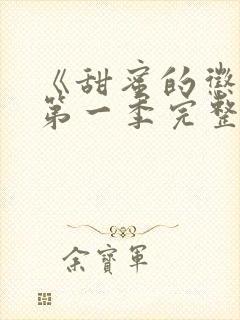 《甜蜜的懲
第一季完整
余寶軍